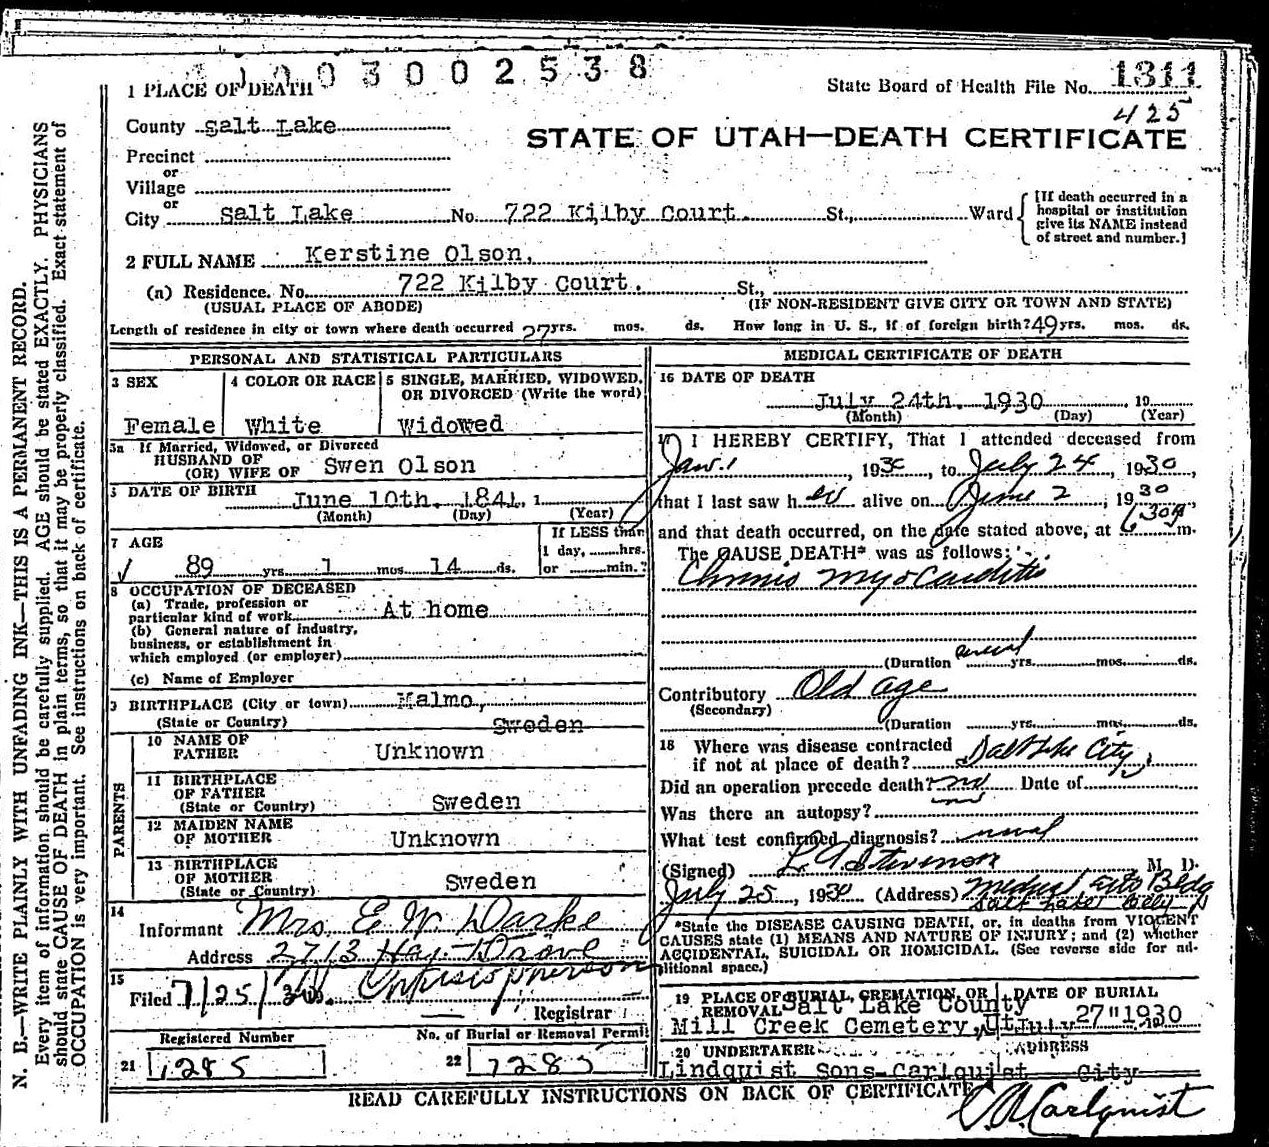 1003002538
1 PLACE OF DEATH
State Board of Health File No. 1311
425
County Salt Lake
STATE OF UTAH—DEATH CERTIFICATE
Precinct
or
Village
or
City Salt Lake No. 722 Kilby Court. St., Ward
[If death occurred in a
hospital or institution
give its NAME instead
of street and number.]
2 FULL NAME Kerstine Olson.
(a) Residence. No. 722 Kilby Court. St.,
(USUAL PLACE OF ABODE) (IF NON-RESIDENT GIVE CITY OR TOWN AND STATE)
Length of residence in city or town where death occurred 27 yrs. mos. ds. How long in U. S., if of foreign birth? 49 yrs. mos. ds.
PERSONAL AND STATISTICAL PARTICULARS
3 SEX
Female
4 COLOR OR RACE
White
5 SINGLE, MARRIED, WIDOWED,
OR DIVORCED (Write the word)
Widowed
5a If Married, Widowed, or Divorced
HUSBAND OF
(OR) WIFE OF Swen Olson
DATE OF BIRTH June 10th. 1841, 1
(Month) (Day) (Year)
7 AGE
89 yrs. 1 mos. 14 ds.
If LESS than
1 day, hrs.
or min.?
8 OCCUPATION OF DECEASED
(a) Trade, profession or
particular kind of work At home
(b) General nature of industry,
business, or establishment in
which employed (or employer)
(c) Name of Employer
9 BIRTHPLACE (City or town) Malmo,
(State or Country) Sweden
PARENTS
10 NAME OF
FATHER Unknown
11 BIRTHPLACE
OF FATHER
(State or Country) Sweden
12 MAIDEN NAME
OF MOTHER Unknown
13 BIRTHPLACE
OF MOTHER
(State or Country) Sweden
14
Informant Mrs. E. W. Darke
Address 2713 Hay
15
Filed 7/25/30
Registrar
Registered Number
21 1285
No. of Burial or Removal Permit
22 1285
MEDICAL CERTIFICATE OF DEATH
16 DATE OF DEATH
July 24th. 1930 19
(Month) (Day) (Year)
17 I HEREBY CERTIFY, That I attended deceased from
Jan. 1, 1930, to July 24, 1930,
that I last saw her alive on June 2, 1930
and that death occurred, on the date stated above, at 6:30 m.
The CAUSE DEATH* was as follows:
Chronic Myocarditis
(Duration yrs. mos. ds.
Contributory Old age
(Secondary)
(Duration yrs. mos. ds.
18 Where was disease contracted
if not at place of death? Salt Lake City
Did an operation precede death? no Date of
Was there an autopsy? no
What test confirmed diagnosis? usual
(Signed) Stevenson M. D.
July 25, 1930 (Address) Medical Arts Bldg
Salt Lake City
*State the DISEASE CAUSING DEATH, or, in deaths from VIOLENT
CAUSES state (1) MEANS AND NATURE OF INJURY; and (2) whether
ACCIDENTAL, SUICIDAL OR HOMICIDAL. (See reverse side for ad-
ditional space.)
19 PLACE OF BURIAL, CREMATION, OR
REMOVAL Salt Lake County
Mill Creek Cemetery, Ut
DATE OF BURIAL
July 27" 1930
20 UNDERTAKER
Lindquist Sons-Carlquist
ADDRESS
City
READ CAREFULLY INSTRUCTIONS ON BACK OF CERTIFICATE
Carlquist
N. B.—WRITE PLAINLY WITH UNFADING INK—THIS IS A PERMANENT RECORD.
Every item of information should be carefully supplied. AGE should be stated EXACTLY. PHYSICIANS
should state CAUSE OF DEATH in plain terms, so that it may be properly classified. Exact statement of
OCCUPATION is very important. See instructions on back of certificate.